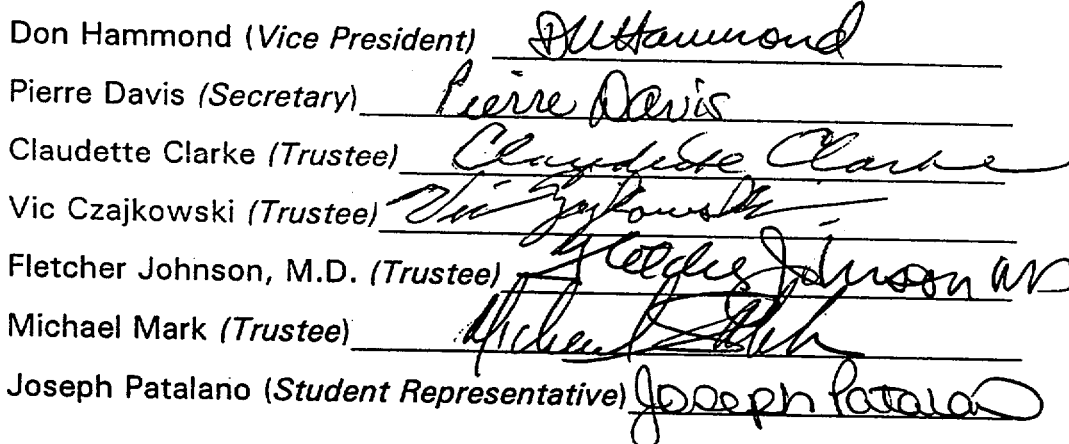 Don Hammond (Vice President) DW Hammond
Pierre Davis (Secretary) Pierre Davis
Claudette Clarke (Trustee) Claudette Clarke
Vic Czajkowski (Trustee) Vic Czajkowski
Fletcher Johnson, M.D. (Trustee) Fletcher Johnson MD
Michael Mark (Trustee) Michael Mark
Joseph Patalano (Student Representative) Joseph Patalano